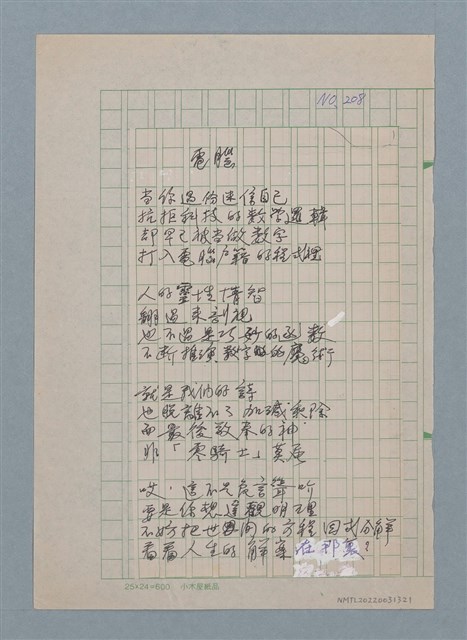 NO. 208
電腦
當你過份迷信自己
抗拒科技的數学邏輯
却早已被当做数字
打入電腦户籍的程式裡
人的靈性情智
翻過來剖視
也不過是巧妙的函数
不断推演数字的魔術
就是我们的詩
也脱離不了加減乘除
而最後敬奉的神
非「零騎士」莫屬
哎，這不是危言聳听
要是你想達觀明理
不妨把世間的方程因式分解
看看人生的解案在那裏？
25×24=600 小木屋紙品
NMTL20220031321